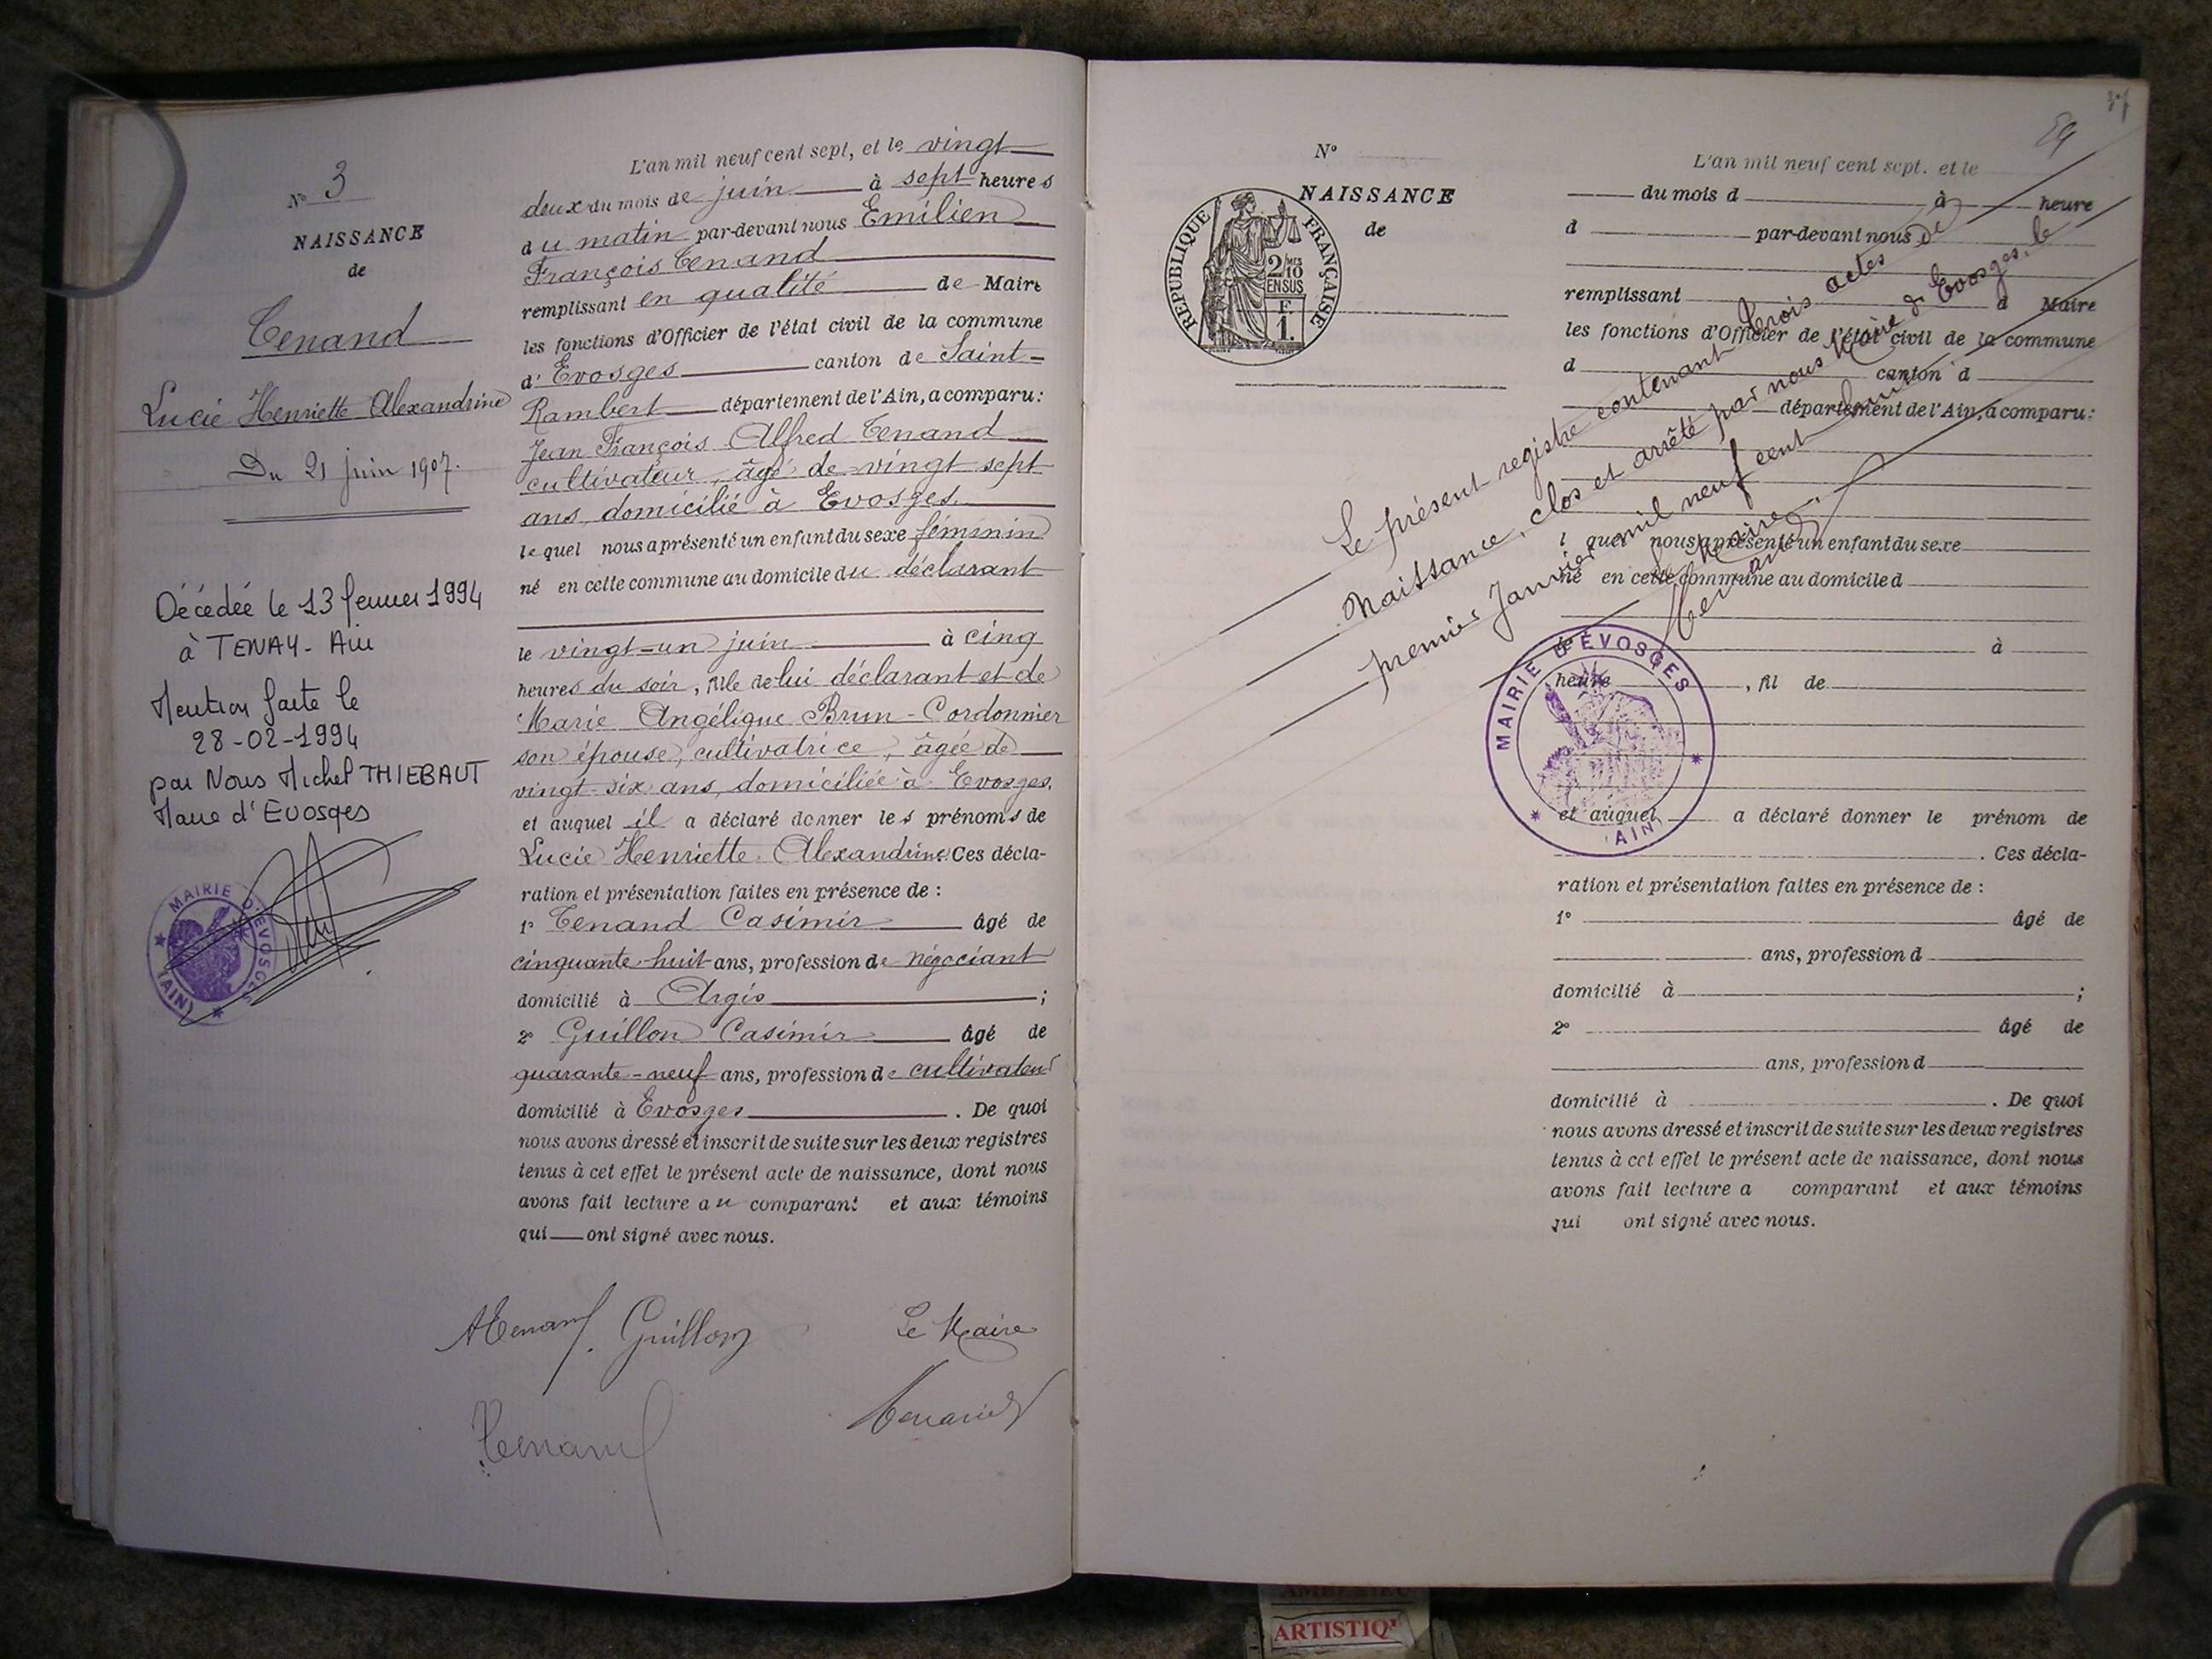 Nº 3
NAISSANCE
de
Tenand
Lucie Henriette Alexandrine
Du 21 juin 1907.
Décédée le 13 fevrier 1994
à TENAY - Ain
Mention faite le
28-02-1994
par Nous Michel THIEBAUT
Maire d'Evosges
MAIRIE D'EVOSGES
(AIN)
L'an mil neuf cent sept, et le vingt
deux du mois de juin à sept heures
du matin par-devant nous Emilien
François Tenand
remplissant en qualité de Maire
les fonctions d'Officier de l'état civil de la commune
d'Evosges canton de Saint-
Rambert département de l'Ain, a comparu:
Jean François Alfred Tenand
cultivateur, âgé de vingt sept
ans, domicilié à Evosges.
lequel nous a présenté un enfant du sexe féminin
né en cette commune au domicile du déclarant
le vingt-un juin à cinq
heures du soir, fille de lui déclarant et de
Marie Angélique Brun-Cordonnier
son épouse, cultivatrice, âgée de
vingt-six ans, domiciliée à Evosges.
et auquel il a déclaré donner les prénoms de
Lucie Henriette Alexandrine. Ces décla-
ration et présentation faites en présence de :
1º Tenand Casimir âgé de
cinquante-huit ans, profession de négociant
domicilié à Argis ;
2º Guillon Casimir âgé de
quarante-neuf ans, profession de cultivateur
domicilié à Evosges . De quoi
nous avons dressé et inscrit de suite sur les deux registres
tenus à cet effet le présent acte de naissance, dont nous
avons fait lecture au comparant et aux témoins
qui ont signé avec nous.
ATenand. Guillon Le Maire
Tenand Tenand
37
Nº
NAISSANCE
de
REPUBLIQUE FRANÇAISE
2/10 MES
EN SUS
F.
1.
L'an mil neuf cent sept. et le
du mois d à heure
d par-devant nous
remplissant d Maire
les fonctions d'Officier de l'état civil de la commune
d canton d
département de l'Ain, a comparu:
l quel nous a présenté un enfant du sexe
né en cette commune au domicile d
le à
heure , fil de
et auquel a déclaré donner le prénom de
. Ces décla-
ration et présentation faites en présence de :
1º âgé de
ans, profession d
domicilié à ;
2º âgé de
ans, profession d
domicilié à . De quoi
nous avons dressé et inscrit de suite sur les deux registres
tenus à cet effet le présent acte de naissance, dont nous
avons fait lecture a comparant et aux témoins
qui ont signé avec nous.
Le présent registre contenant trois actes de
Naissance, clos et arrêté par nous Maire de Evosges, le
premier Janvier mil neuf cent huit
Le Maire.
Tenand
MAIRIE D'ÉVOSGES
(AIN)
ARTISTIQ